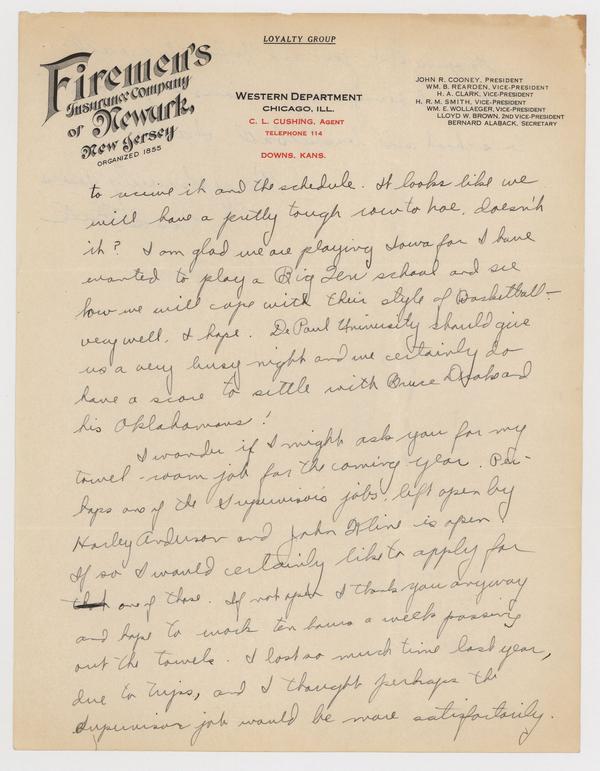 LOYALTY GROUP
Firemen's
Insurance Company
of Newark,
New Jersey
ORGANIZED 1855
WESTERN DEPARTMENT
CHICAGO, ILL.
C. L. CUSHING, AGENT
TELEPHONE 114
DOWNS, KANS.
JOHN R. COONEY, PRESIDENT
WM. B. REARDEN, VICE-PRESIDENT
H. A. CLARK, VICE-PRESIDENT
H. R. M. SMITH, VICE-PRESIDENT
WM. E. WOLLAEGER, VICE-PRESIDENT
LLOYD W. BROWN, 2ND VICE-PRESIDENT
BERNARD ALABACK, SECRETARY
to receive it and the schedule. It looks like we
will have a pretty tough row to hoe, doesn't
it? I am glad we are playing Iowa for I have
wanted to play a Big Ten school and see
how we will cope with their style of Basketball -
very well, I hope. De Paul University should give
us a very busy night and we certainly do
have a score to settle with Bruce Drake and
his Oklahomans!
I wonder if I might ask you for my
towel-room job for the coming year. Per-
haps one of the Supervisor's jobs, left open by
Harley Anderson and John Kline is open?
If so I would certainly like to apply for
one of those. If not open I thank you anyway
and hope to work ten hours a week passing
out the towels. I lost so much time last year,
due to trips, and I thought perhaps the
supervisor job would be more satisfactorily.